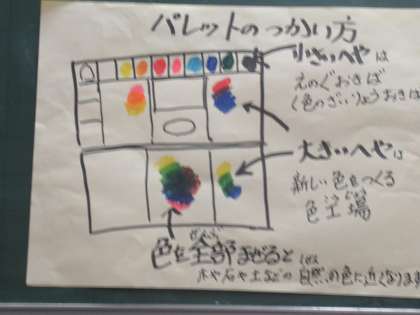 パレットのつかい方
小さいへやは
えのぐおきば
(色のざいりょうおきば
大きいへやは
新しい色をつくる
色工場
こうじょう
ぜんぶ
色を全部まぜると
木や石や土などの自然の色に近くなります